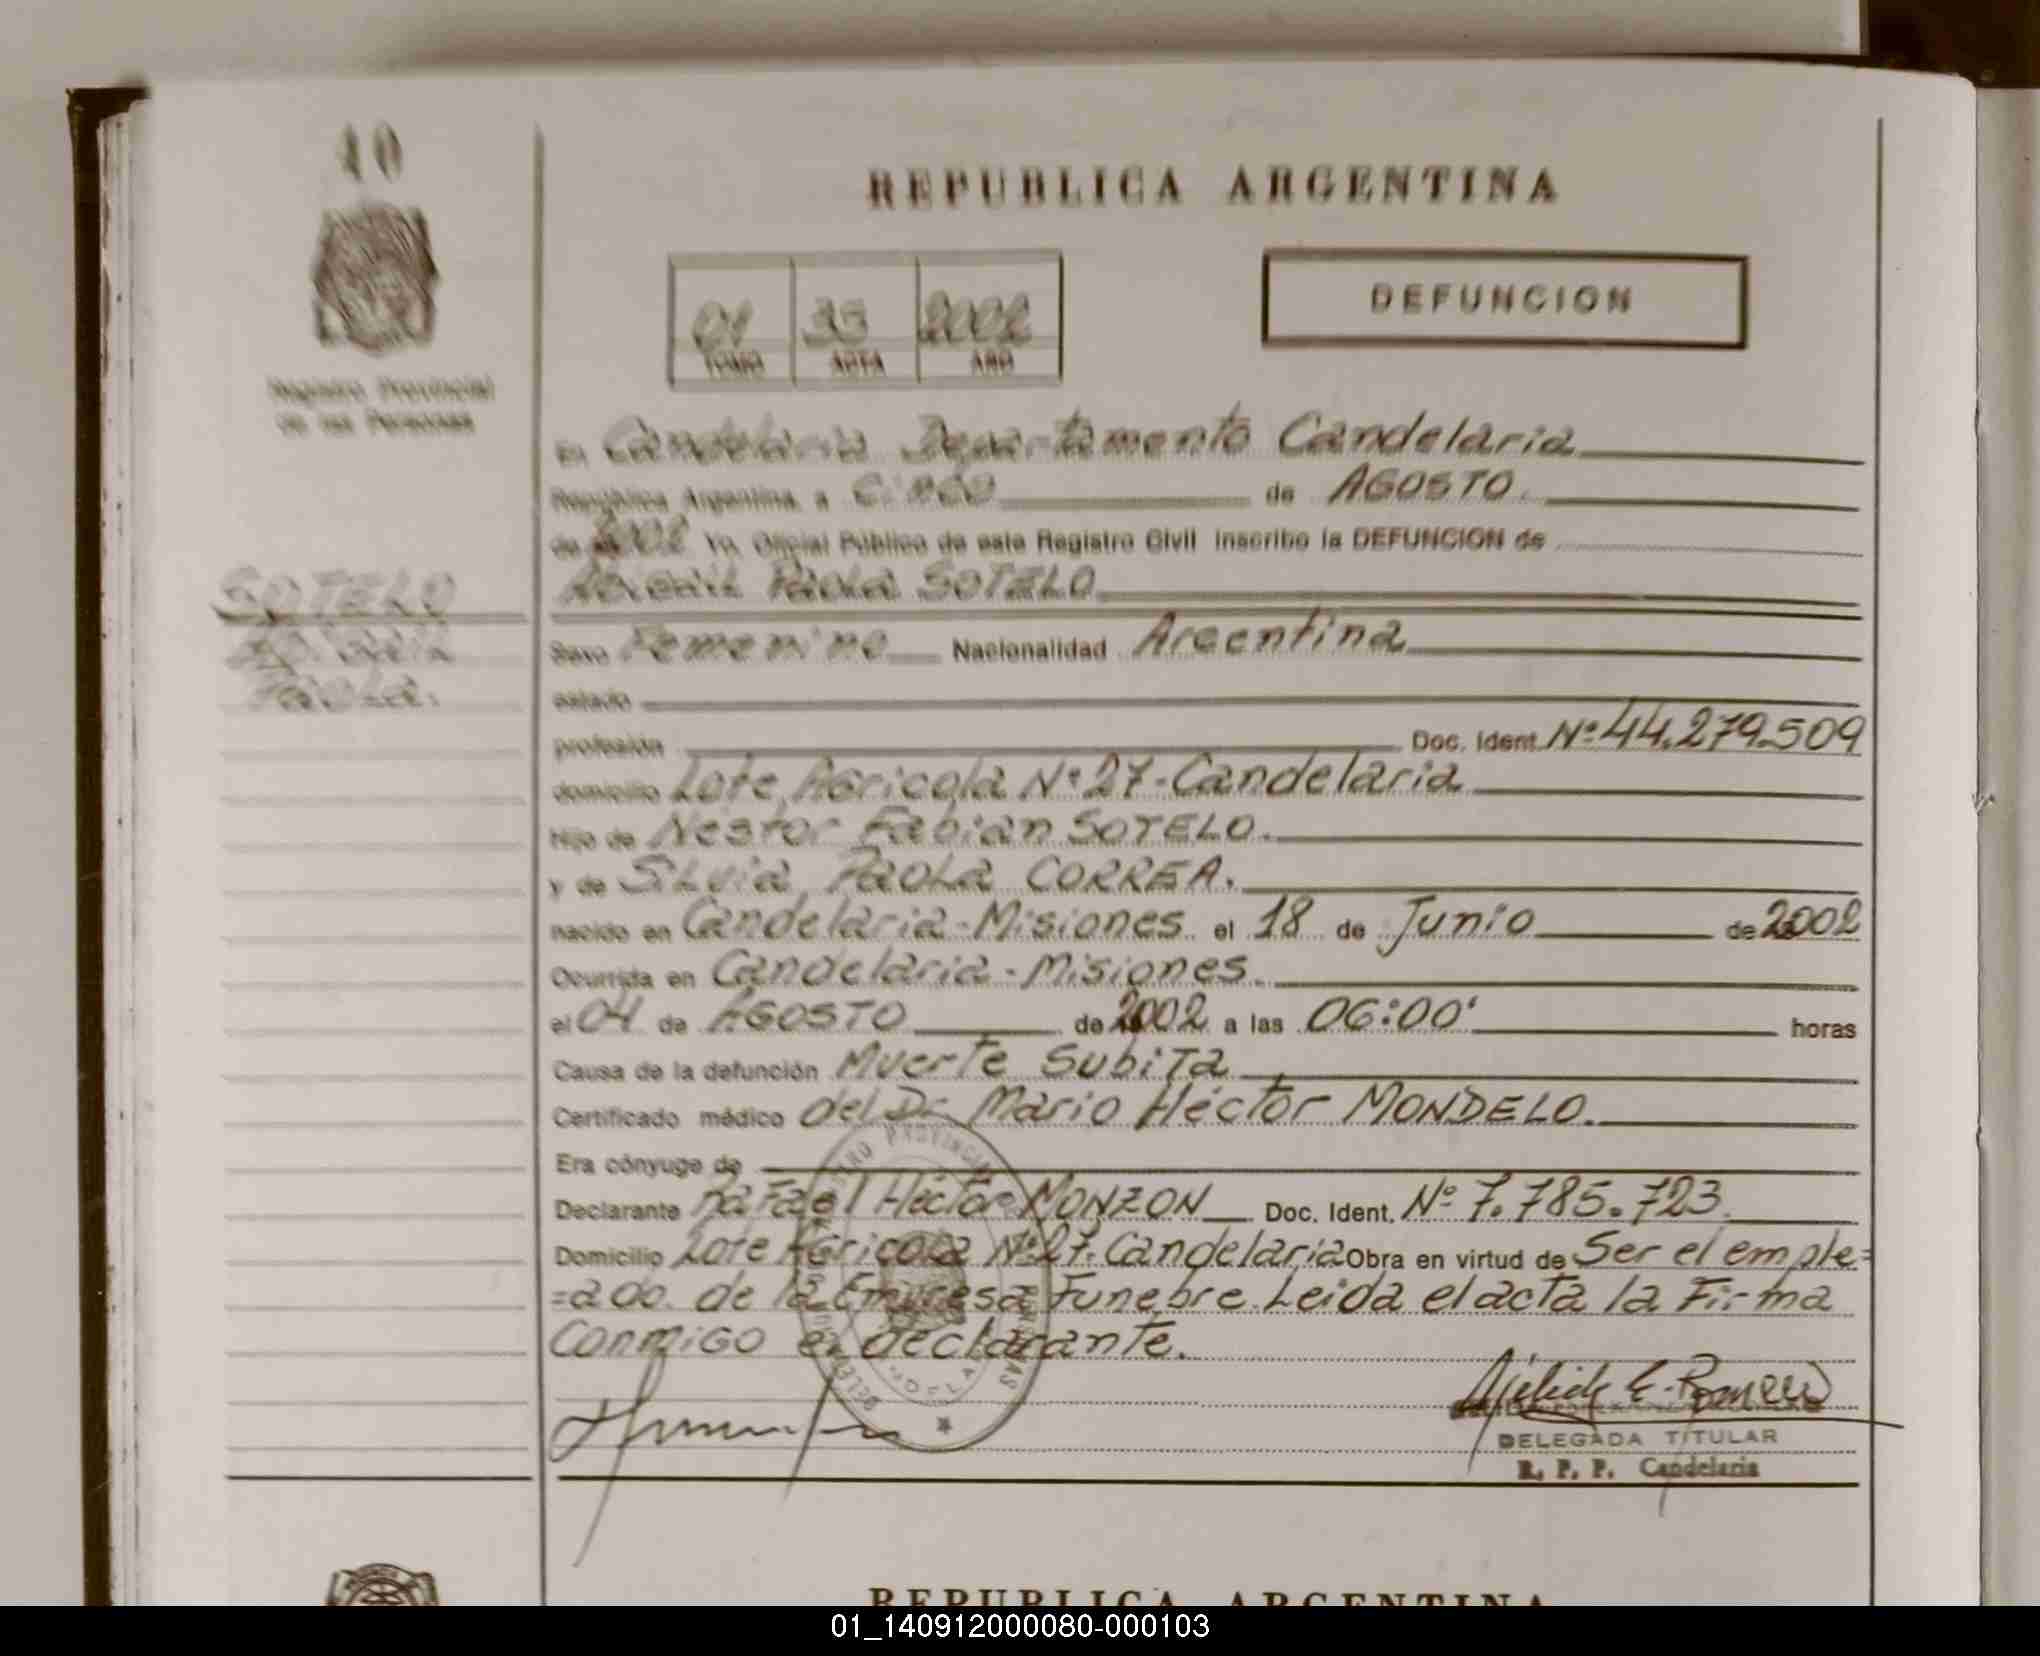 10
REPUBLICA ARGENTINA
01 33 2002
TOMO ACTA AÑO
DEFUNCION
Registro Provincial
de las Personas
En Candelaria Departamento Candelaria
República Argentina, a Cinco de AGOSTO.
de 2002 Yo, Oficial Público de este Registro Civil inscribo la DEFUNCION de
Paola SOTELO
SOTELO
Paola.
Sexo Femenino Nacionalidad Argentina
estado
profesión Doc. Ident. Nº 44.279.509
domicilio Lote Agricola Nº 27-Candelaria
Hijo de Nestor Fabian SOTELO.
y de Silvia Paola CORREA.
nacido en Candelaria-Misiones el 18 de Junio de 2002
Ocurrida en Candelaria-Misiones.
el 04 de AGOSTO de 2002 a las 06:00' horas
Causa de la defunción Muerte Subita
Certificado médico del Dr. Mario Héctor MONDELO.
Era cónyuge de
Declarante Rafael Héctor MONZON Doc. Ident. Nº 7.785.723
Domicilio Lote Agricola Nº 27-Candelaria Obra en virtud de Ser el emple=
=ado. de la Empresa Funebre. Leida el acta la Firma
Conmigo el declarante.
DELEGADA TITULAR
R. P. P. Candelaria
REPUBLICA ARGENTINA
01_140912000080-000103